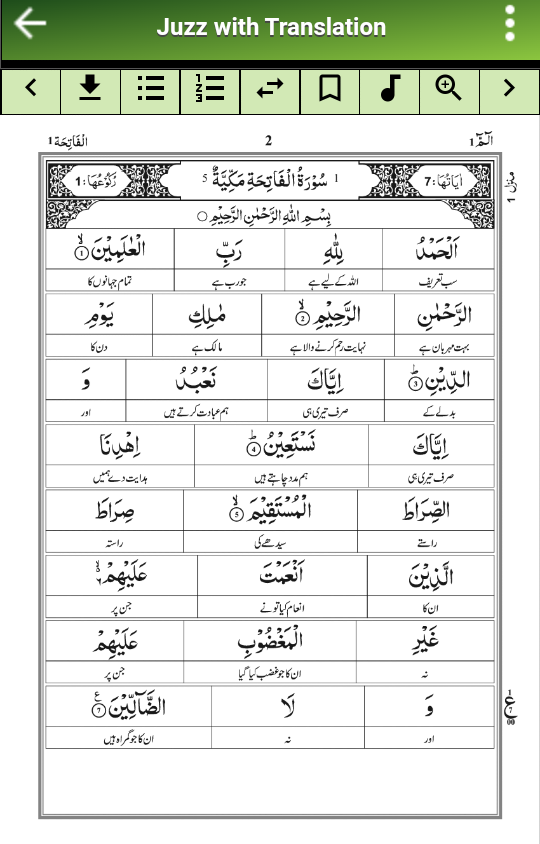 Juzz with Translation
الٓمّٓ 1
2
الْفَاتِحَة 1
مَنْزِل 1
اٰيَاتُهَا: 7
1 سُوْرَةُ الْفَاتِحَةِ مَكِّيَّةٌ 5
رُكُوْعُهَا: 1
بِسْمِ اللّٰهِ الرَّحْمٰنِ الرَّحِيْمِ
اَلْحَمْدُ لِلّٰهِ رَبِّ الْعٰلَمِيْنَ ۙ 1
سب تعریف اللہ کے لیے ہے جو رب ہے تمام جہانوں کا
الرَّحْمٰنِ الرَّحِيْمِ ۙ 2 مٰلِكِ يَوْمِ
بہت مہربان ہے نہایت رحم کرنے والا ہے مالک ہے دن کا
الدِّيْنِ ؕ 3 اِيَّاكَ نَعْبُدُ وَ
بدلے کے صرف تیری ہی ہم عبادت کرتے ہیں اور
اِيَّاكَ نَسْتَعِيْنُ ؕ 4 اِهْدِنَا
صرف تیری ہی ہم مدد چاہتے ہیں ہدایت دے ہمیں
الصِّرَاطَ الْمُسْتَقِيْمَ ۙ 5 صِرَاطَ
راستے سیدھے کی راستہ
الَّذِيْنَ اَنْعَمْتَ عَلَيْهِمْ ۙ۬
ان کا انعام کیا تو نے جن پر
غَيْرِ الْمَغْضُوْبِ عَلَيْهِمْ
نہ ان کا جو غضب کیا گیا جن پر
وَ لَا الضَّآلِّيْنَ ۧ 7
اور نہ ان کا جو گمراہ ہیں